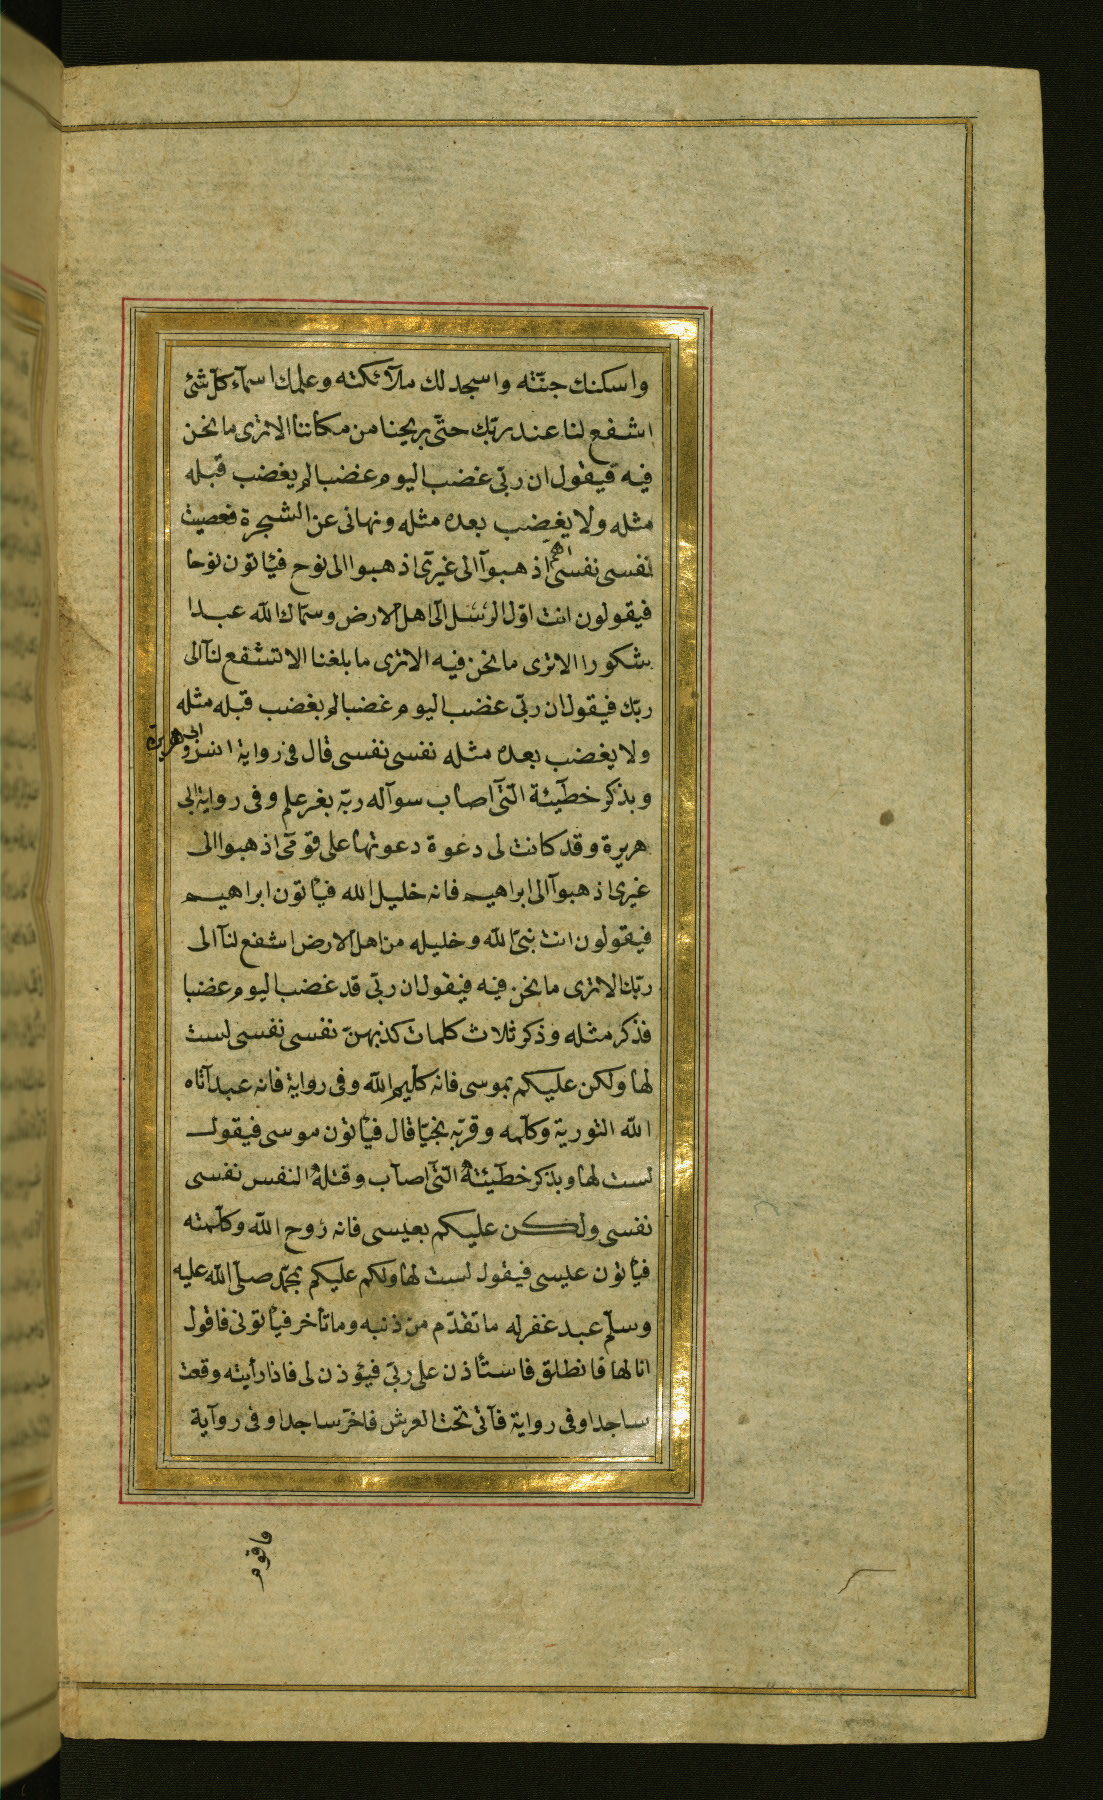 واسكنك جنّته واسجد لك ملآئكته وعلمك اسمآء كلّ شئ
اشفع لنا عند ربّك حتّى يريحنا من مكاننا الا ترى ما نحن
فيه فيقول ان ربّى غضب اليوم غضبا لم يغضب قبله
مثله ولا يغضب بعده مثله ونهانى عن الشجرة فعصيت
نفسى نفسى اذهبوآ الى غيرى اذهبوا الى نوح فيأتون نوحا
فيقولون انت اوّل الرسل الى اهل الارض وسمّاك اللّه عبدا
شكورا الا ترى ما نحن فيه الا ترى ما بلغنا الا تشفع لنآ الى
ربّك فيقول ان ربّى غضب اليوم غضبا لم يغضب قبله مثله
ولا يغضب بعده مثله نفسى نفسى قال فى رواية انس و ابى هريرة
ويذكر خطيئة الّتى اصاب سوآله ربّه بغير علم وفى رواية ابى
هريرة وقد كانت لى دعوة دعوتها على قومى اذهبوا الى
غيرى اذهبوآ الى ابراهيم فانه خليل الله فيأتون ابراهيم
فيقولون انت نبىّ اللّه وخليله من اهل الارض اشفع لنآ الى
ربّك الا ترى ما نحن فيه فيقول ان ربّى قد غضب اليوم غضبا
فذكر مثله وذكر ثلاث كلمات كذبهنّ نفسى نفسى لست
لها ولكن عليكم بموسى فانه كليم اللّه وفى رواية فانه عبد آتاه
اللّه التورية وكلّمه وقربّه نجيّا قال فيأتون موسى فيقول
لست لها ويذكر خطيئته الّتى اصاب وقتله النفس نفسى
نفسى ولكن عليكم بعيسى فانه روح اللّه وكلمته
فيأتون عيسى فيقول لست لها ولكم عليكم بمحمّد صلّى اللّه عليه
وسلّم عبد غفر له ما تقدّم من ذنبه وما تأخر فيأتونى فاقول
انا لها فانطلق فاستأذن على ربّى فيؤذن لى فاذا رأيته وقعت
ساجدا وفى رواية فآتى تحت العرش فاخرّ ساجدا وفى روآية
فاقوم